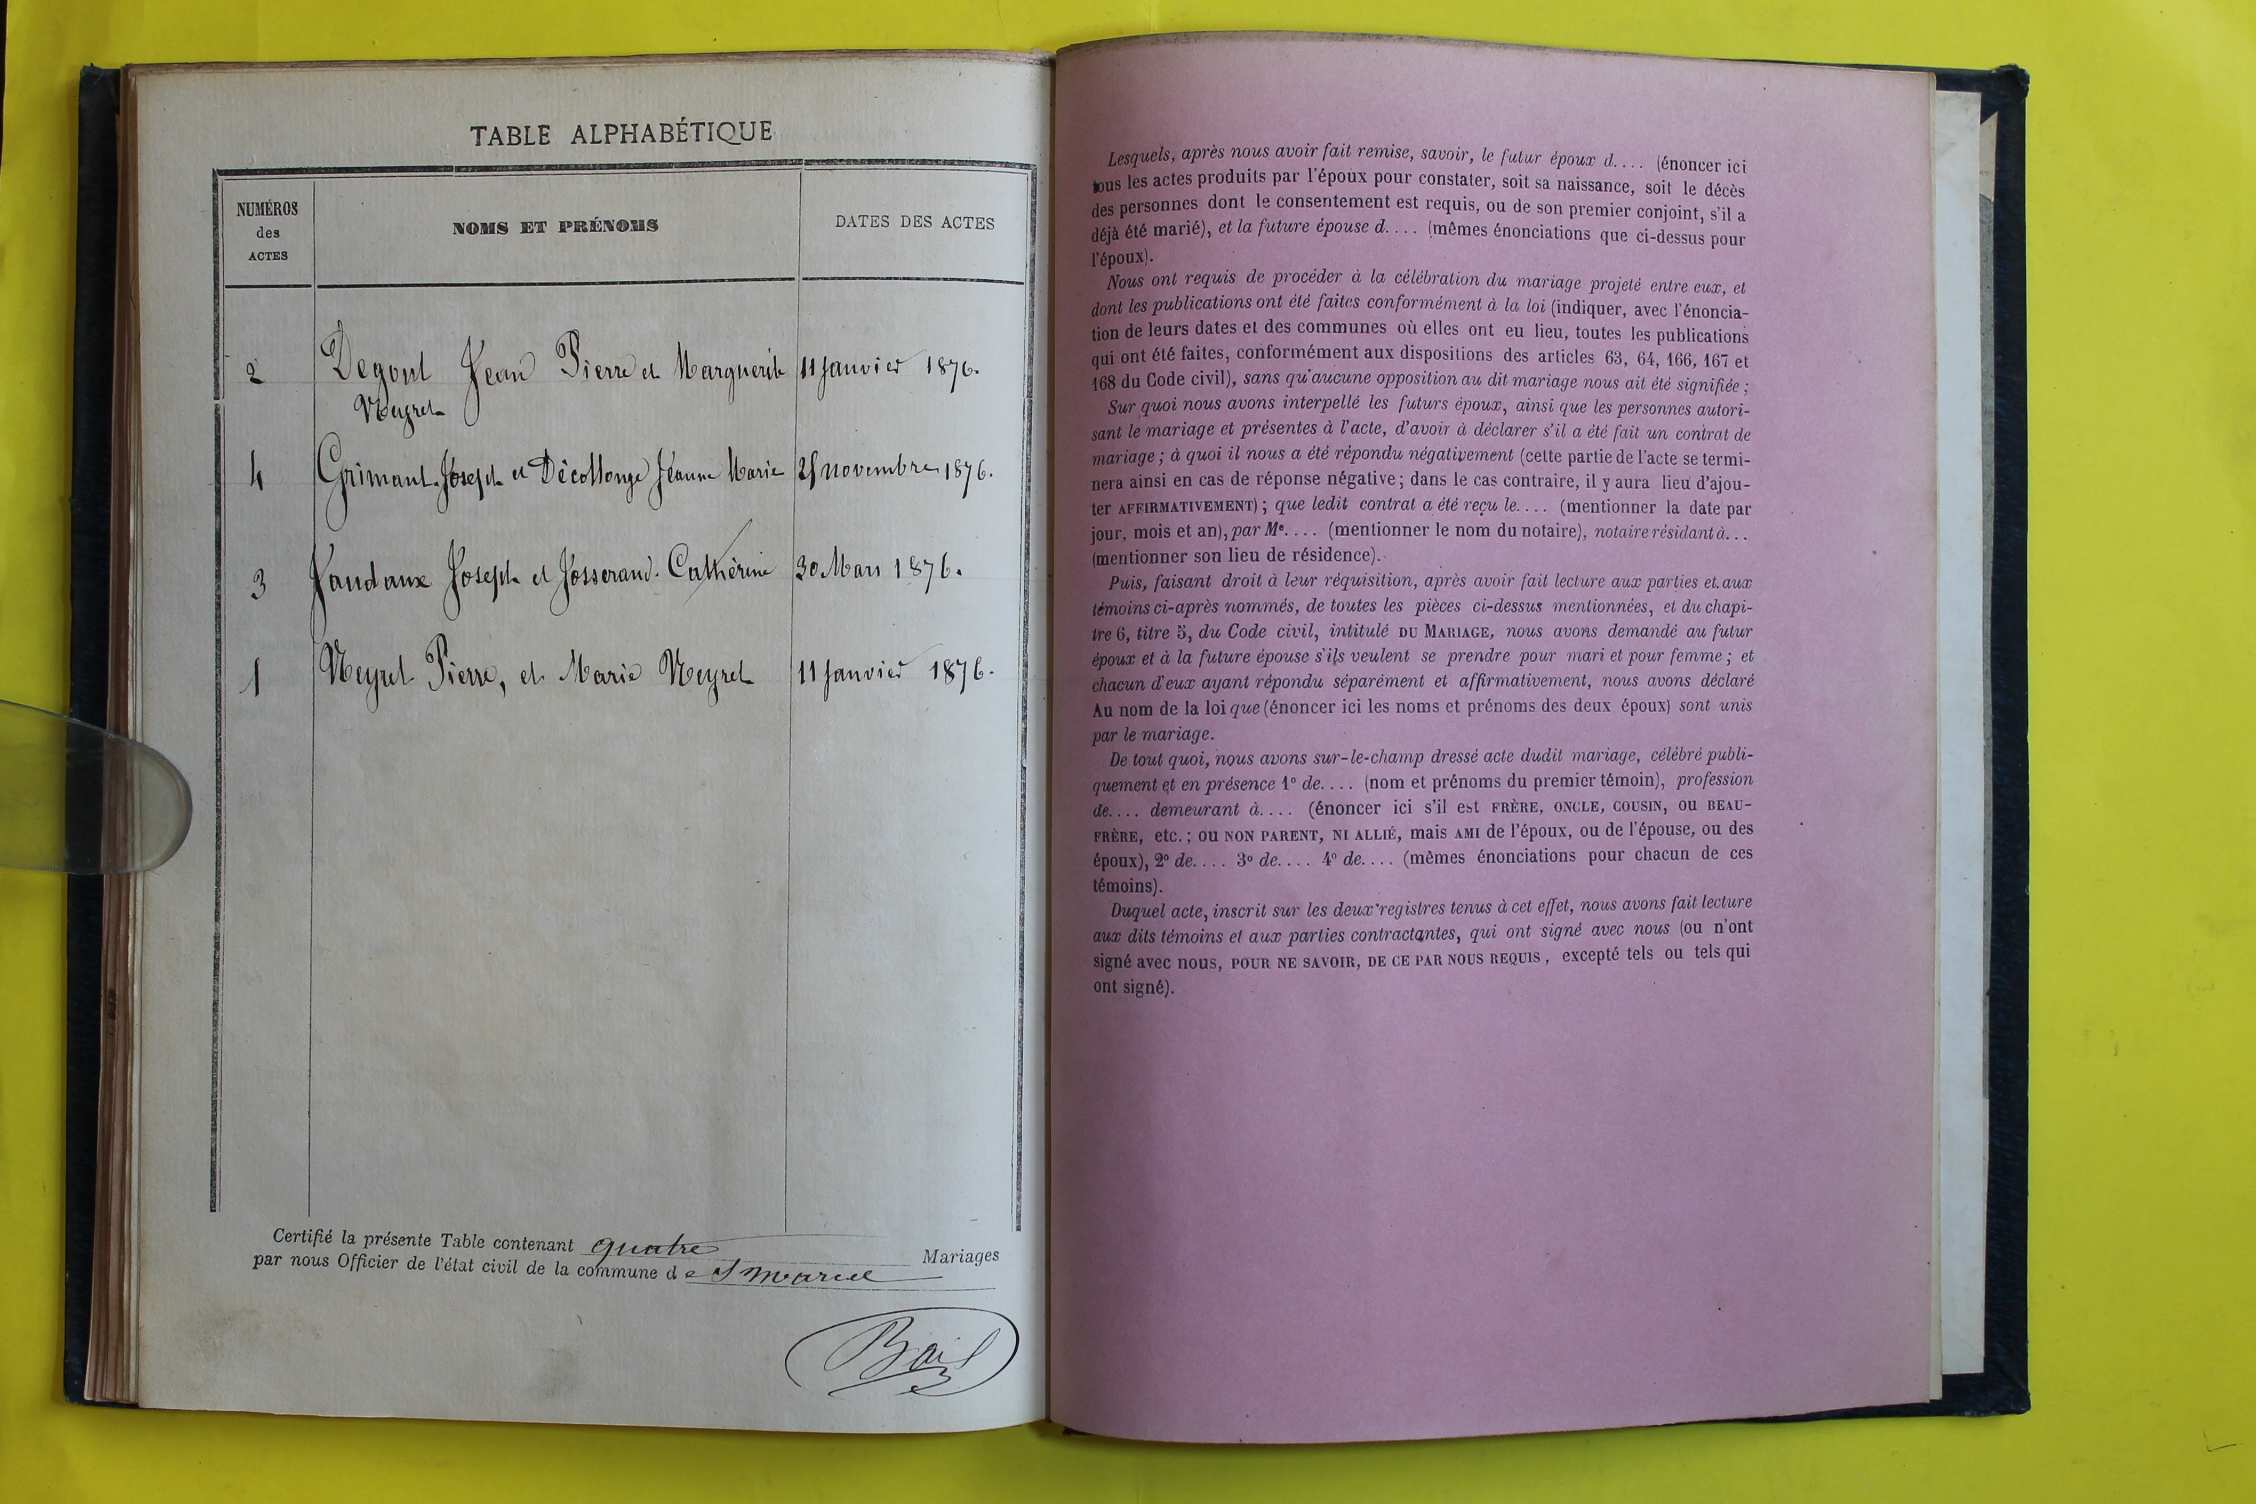 TABLE ALPHABÉTIQUE
NUMÉROS
des
ACTES
NOMS ET PRÉNOMS
DATES DES ACTES
2 Degoul Jean Pierre et Marguerite 11 Janvier 1876.
Neyret
4 Grimaut Joseph et Décollonge Jeanne Marie 25 novembre 1876.
3 Jandaux Joseph et Josserand Cathérine 30 Mars 1876.
1 Neyret Pierre, et Marie Neyret 11 Janvier 1876.
Certifié la présente Table contenant quatre Mariages
par nous Officier de l'état civil de la commune d e St Marcel
Bail
Lesquels, après nous avoir fait remise, savoir, le futur époux d.... (énoncer ici
tous les actes produits par l'époux pour constater, soit sa naissance, soit le décès
des personnes dont le consentement est requis, ou de son premier conjoint, s'il a
déjà été marié), et la future épouse d.... (mêmes énonciations que ci-dessus pour
l'époux).
Nous ont requis de procéder à la célébration du mariage projeté entre eux, et
dont les publications ont été faites conformément à la loi (indiquer, avec l'énoncia-
tion de leurs dates et des communes où elles ont eu lieu, toutes les publications
qui ont été faites, conformément aux dispositions des articles 63, 64, 166, 167 et
168 du Code civil), sans qu'aucune opposition au dit mariage nous ait été signifiée ;
Sur quoi nous avons interpellé les futurs époux, ainsi que les personnes autori-
sant le mariage et présentes à l'acte, d'avoir à déclarer s'il a été fait un contrat de
mariage ; à quoi il nous a été répondu négativement (cette partie de l'acte se termi-
nera ainsi en cas de réponse négative ; dans le cas contraire, il y aura lieu d'ajou-
ter AFFIRMATIVEMENT) ; que ledit contrat a été reçu le.... (mentionner la date par
jour, mois et an), par Me.... (mentionner le nom du notaire), notaire résidant à...
(mentionner son lieu de résidence).
Puis, faisant droit à leur réquisition, après avoir fait lecture aux parties et aux
témoins ci-après nommés, de toutes les pièces ci-dessus mentionnées, et du chapi-
tre 6, titre 5, du Code civil, intitulé DU MARIAGE, nous avons demandé au futur
époux et à la future épouse s'ils veulent se prendre pour mari et pour femme ; et
chacun d'eux ayant répondu séparément et affirmativement, nous avons déclaré
Au nom de la loi que (énoncer ici les noms et prénoms des deux époux) sont unis
par le mariage.
De tout quoi, nous avons sur-le-champ dressé acte dudit mariage, célébré publi-
quement et en présence 1° de.... (nom et prénoms du premier témoin), profession
de.... demeurant à.... (énoncer ici s'il est FRÈRE, ONCLE, COUSIN, OU BEAU-
FRÈRE, etc. ; ou NON PARENT, NI ALLIÉ, mais AMI de l'époux, ou de l'épouse, ou des
époux), 2° de.... 3° de.... 4° de.... (mêmes énonciations pour chacun de ces
témoins).
Duquel acte, inscrit sur les deux registres tenus à cet effet, nous avons fait lecture
aux dits témoins et aux parties contractantes, qui ont signé avec nous (ou n'ont
signé avec nous, POUR NE SAVOIR, DE CE PAR NOUS REQUIS, excepté tels ou tels qui
ont signé).